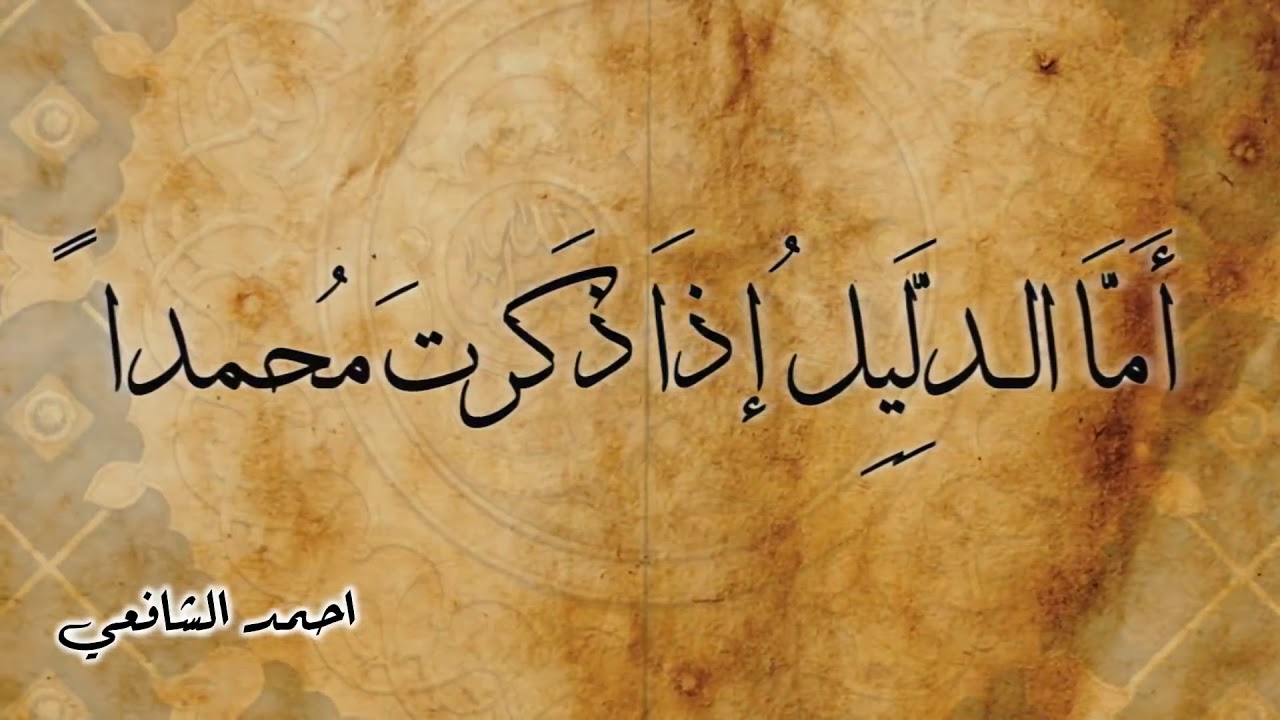 أَمَّا الدلَِّيِلِ إُذاَ ذْكَرتَ مُحمداً
احمد الشافعي